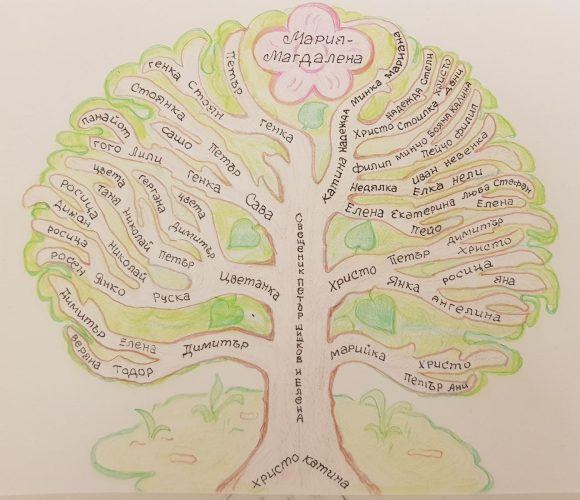 Мария-
Магдалена
Петър
Генка
Стоян
Генка
Стоянка
Сашо Петър
Панайот
Гого Лили Генка
Сава
Цвета Гергана Цвета
Таня Николай Петър Димитър
Росица
Диман Николай
Цветанка
Росица
Росен Янко Руска
Димитър Елена Димитър
Веряна Тодор
Катина Надежда Минка Мариана
Надежда Степи
Христо Стоилка Дани
Христо
Филип Минчо Бояна Калина
Пейчо Филип
Иван Невенка
Недялка Елка Нели
Елена Екатерина Люба Стефан
Пейо Елена
Димитър
Христо Петър Христо
Янка Росица
Яна
Ангелина
Марийка Христо
Петър Ани
Свещеник Петър Шишков и Елена
Христо Катина